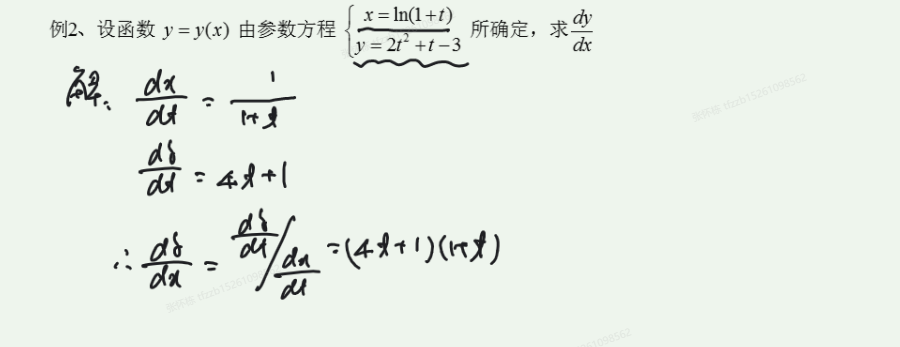 例2、设函数 y = y(x) 由参数方程 { x = ln(1+t) y = 2t² + t − 3 所确定，求 dy/dx
解: dx/dt = 1/(1+t)
dy/dt = 4t+1
∴ dy/dx = dy/dt / dx/dt = (4t+1)(1+t)